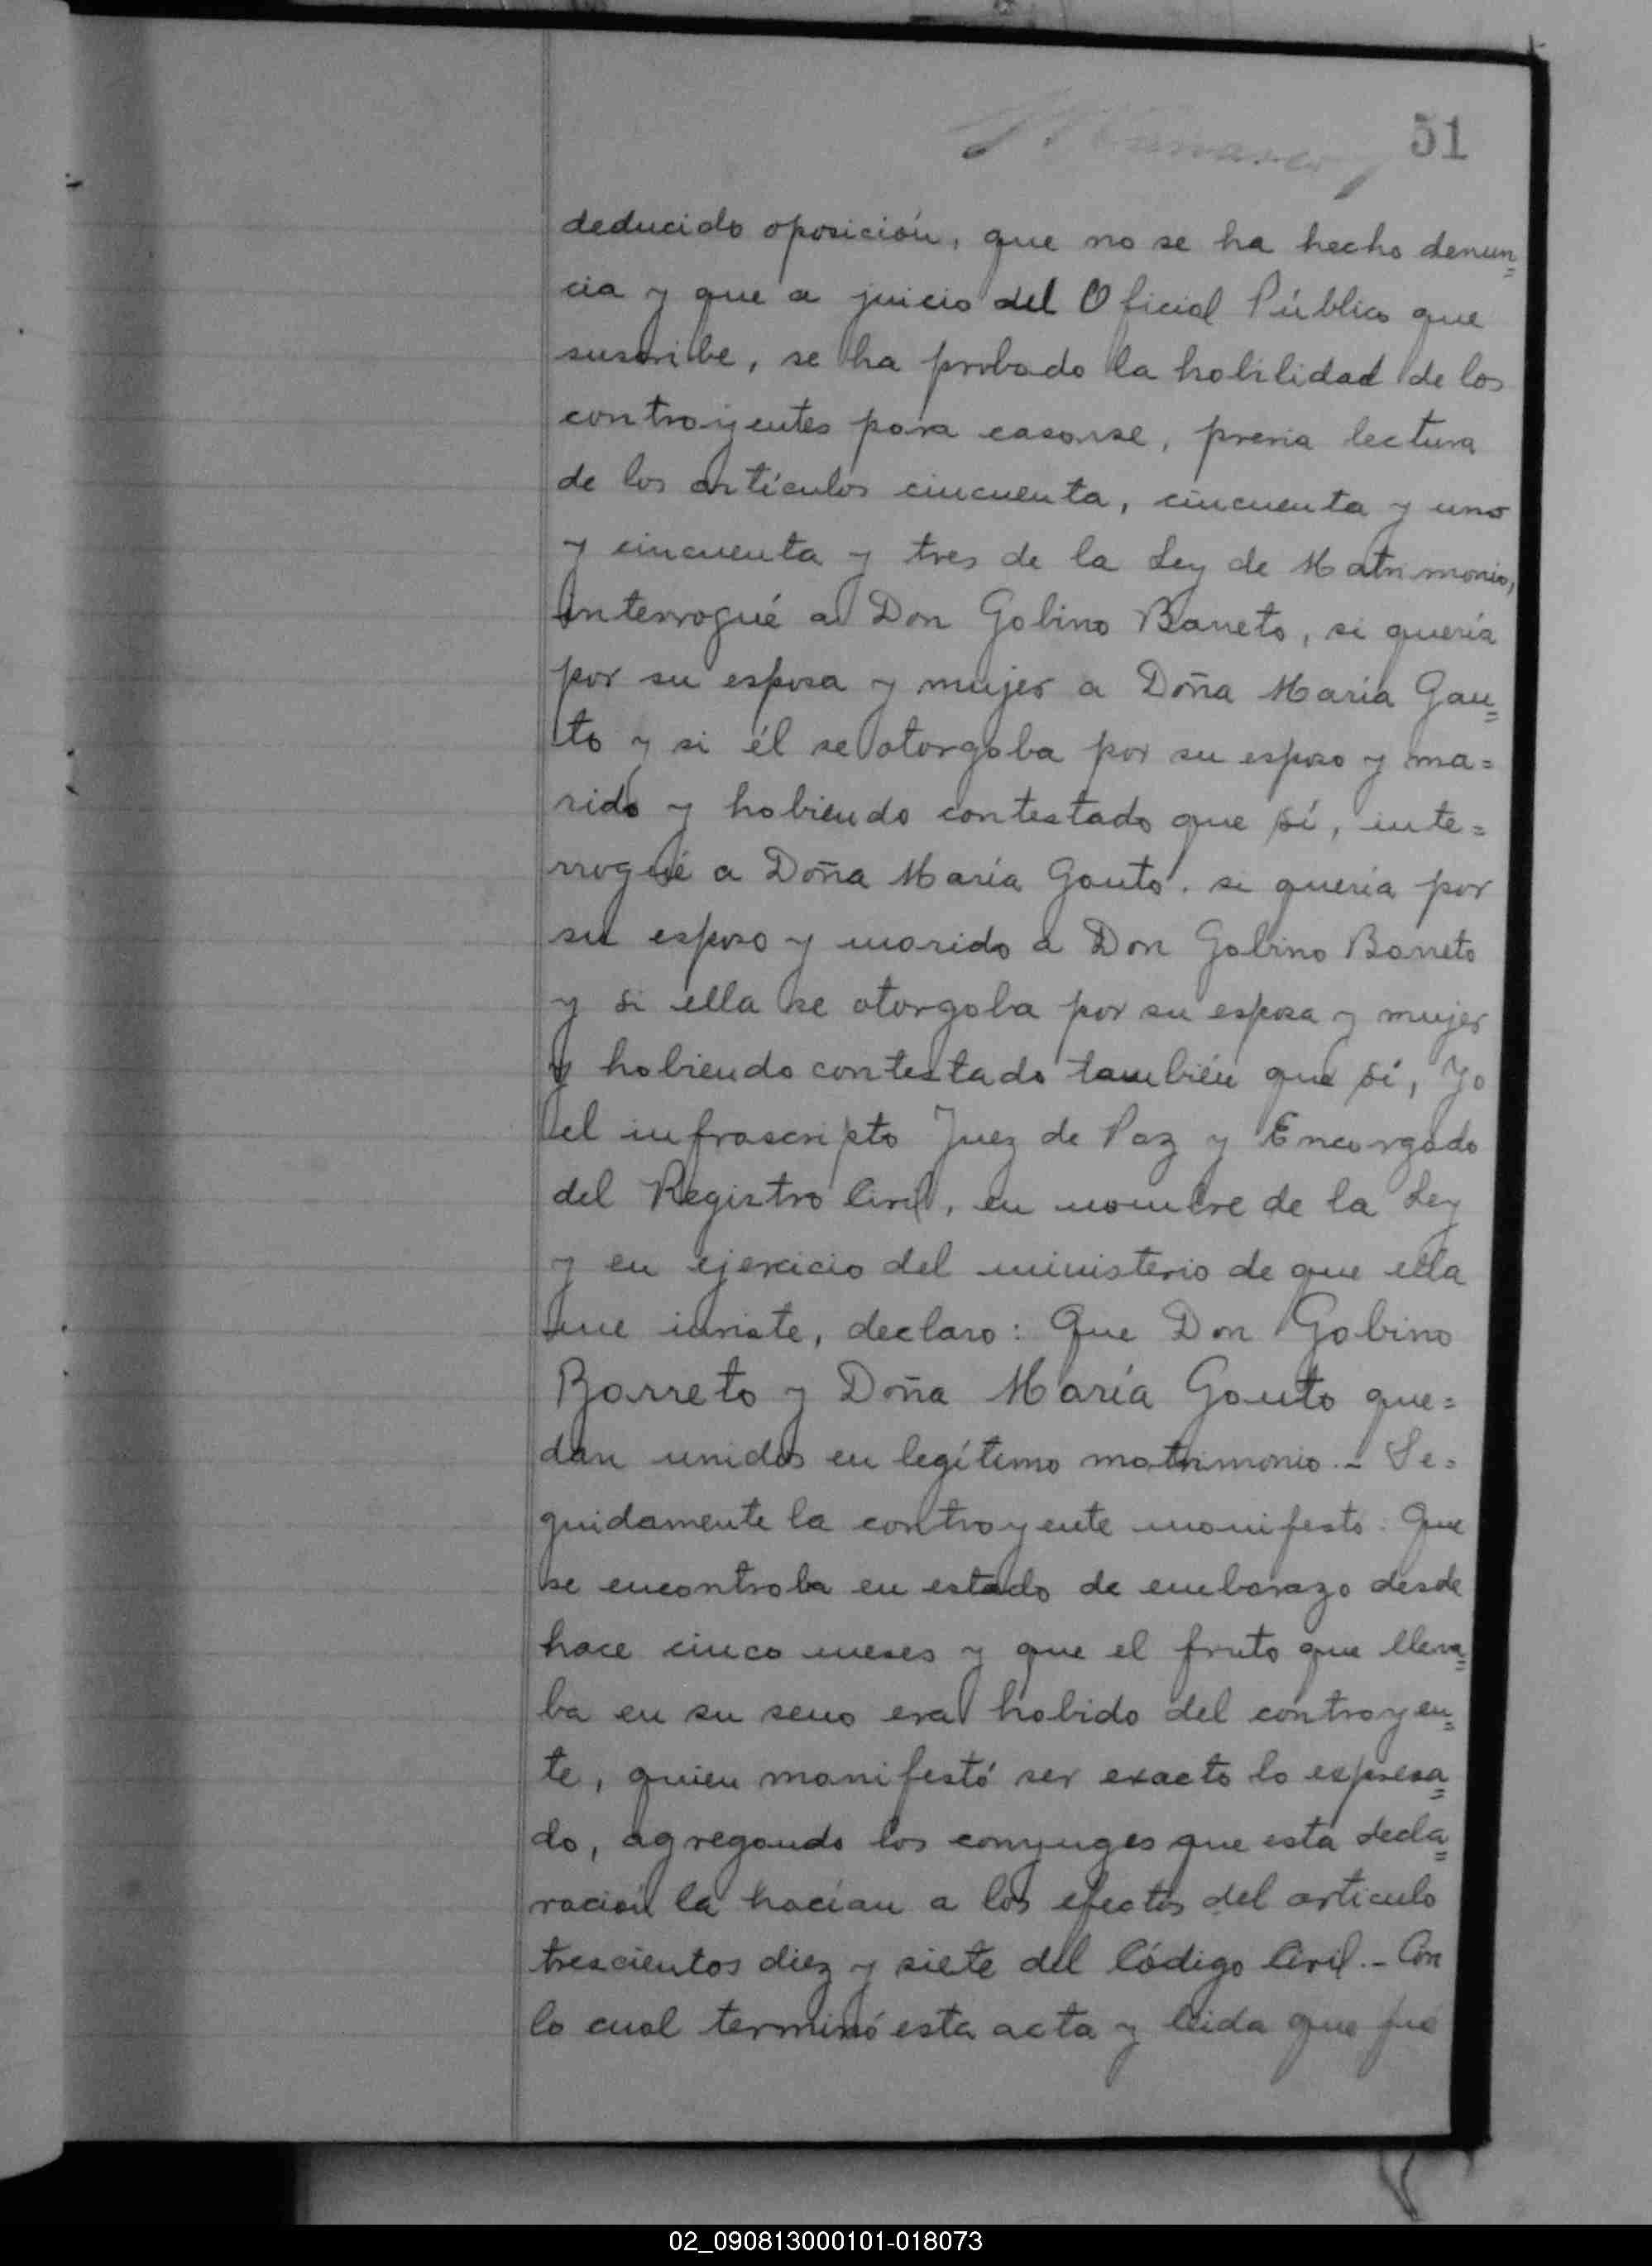 51
deducido oposición, que no se ha hecho denun=
cia y que a juicio del Oficial Público que
suscribe, se ha probado la habilidad de los
contrayentes para casarse, previa lectura
de los artículos cincuenta, cincuenta y uno
y cincuenta y tres de la Ley de Matrimonio,
interrogué a Don Gabino Barreto, si quería
por su esposa y mujer a Doña María Gau=
to y si él se otorgaba por su esposo y ma=
rido y habiendo contestado que sí, inte=
rrogué a Doña María Gauto. si quería por
su esposo y marido a Don Gabino Barreto
y si ella se otorgaba por su esposa y mujer
y habiendo contestado también que sí, Yo
el infrascripto Juez de Paz y Encargado
del Registro Civil, en nombre de la Ley
y en ejercicio del ministerio de que ella
me inviste, declaro: Que Don Gabino
Barreto y Doña María Gauto que=
dan unidos en legítimo matrimonio.- Se=
guidamente la contrayente manifesto: Que
se encontraba en estado de embarazo desde
hace cinco meses y que el fruto que lleva=
ba en su seno era habido del contrayen=
te, quien manifestó ser exacto lo expresa=
do, agregando los conyuges que esta decla=
ración la hacían a los efectos del artículo
trescientos diez y siete del Código Civil.- Con
lo cual terminó esta acta y leida que fué
02_090813000101-018073